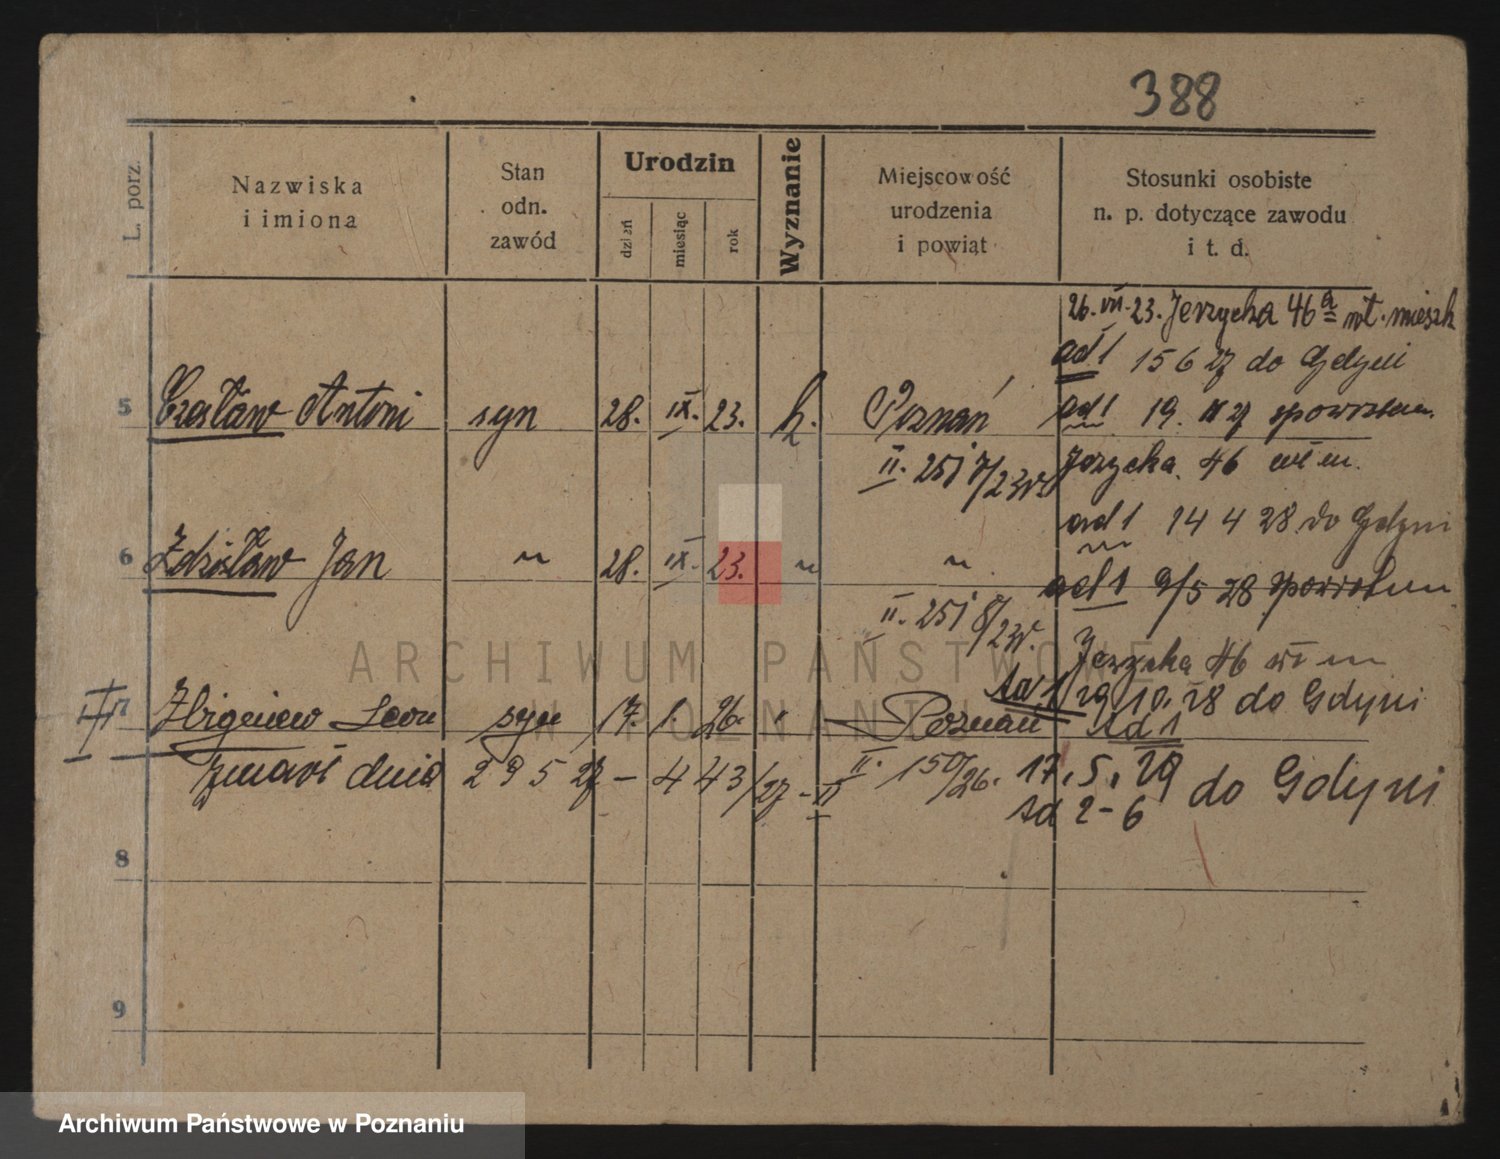 388
L. porz.
Nazwiska
i imiona
Stan
odn.
zawód
Urodzin
dzień
miesiąc
rok
Wyznanie
Miejscowość
urodzenia
i powiąt
Stosunki osobiste
n. p. dotyczące zawodu
i t. d.
26. VII. 23. Jerzycka 46 a wł. mieszk
ad 1 15 6 27 do Gdyni
5 Czesław Antoni syn 28. IX. 23. k. Poznań
ad 1 19. 27
II. 251 7/23
Jerzycka 46
ad 1 14 4 28 do Gdyni
6 Zdzisław Jan 〃 28. IX. 23. 〃 〃
ad 1 9/5 28
II. 251 8/23
Jerzycka 46
ad 1 29 10. 28 do Gdyni
7 Zbigniew Leon syn 17. 1. 26. 〃 Poznań
zmarł dnia 29 5 27 – 443/27 – II
II. 150/26.
ad 1
17. 5. 29 do Gdyni
ad 2-6
8
9
ARCHIWUM PAŃSTWOWE
W POZNANIU
Archiwum Państwowe w Poznaniu